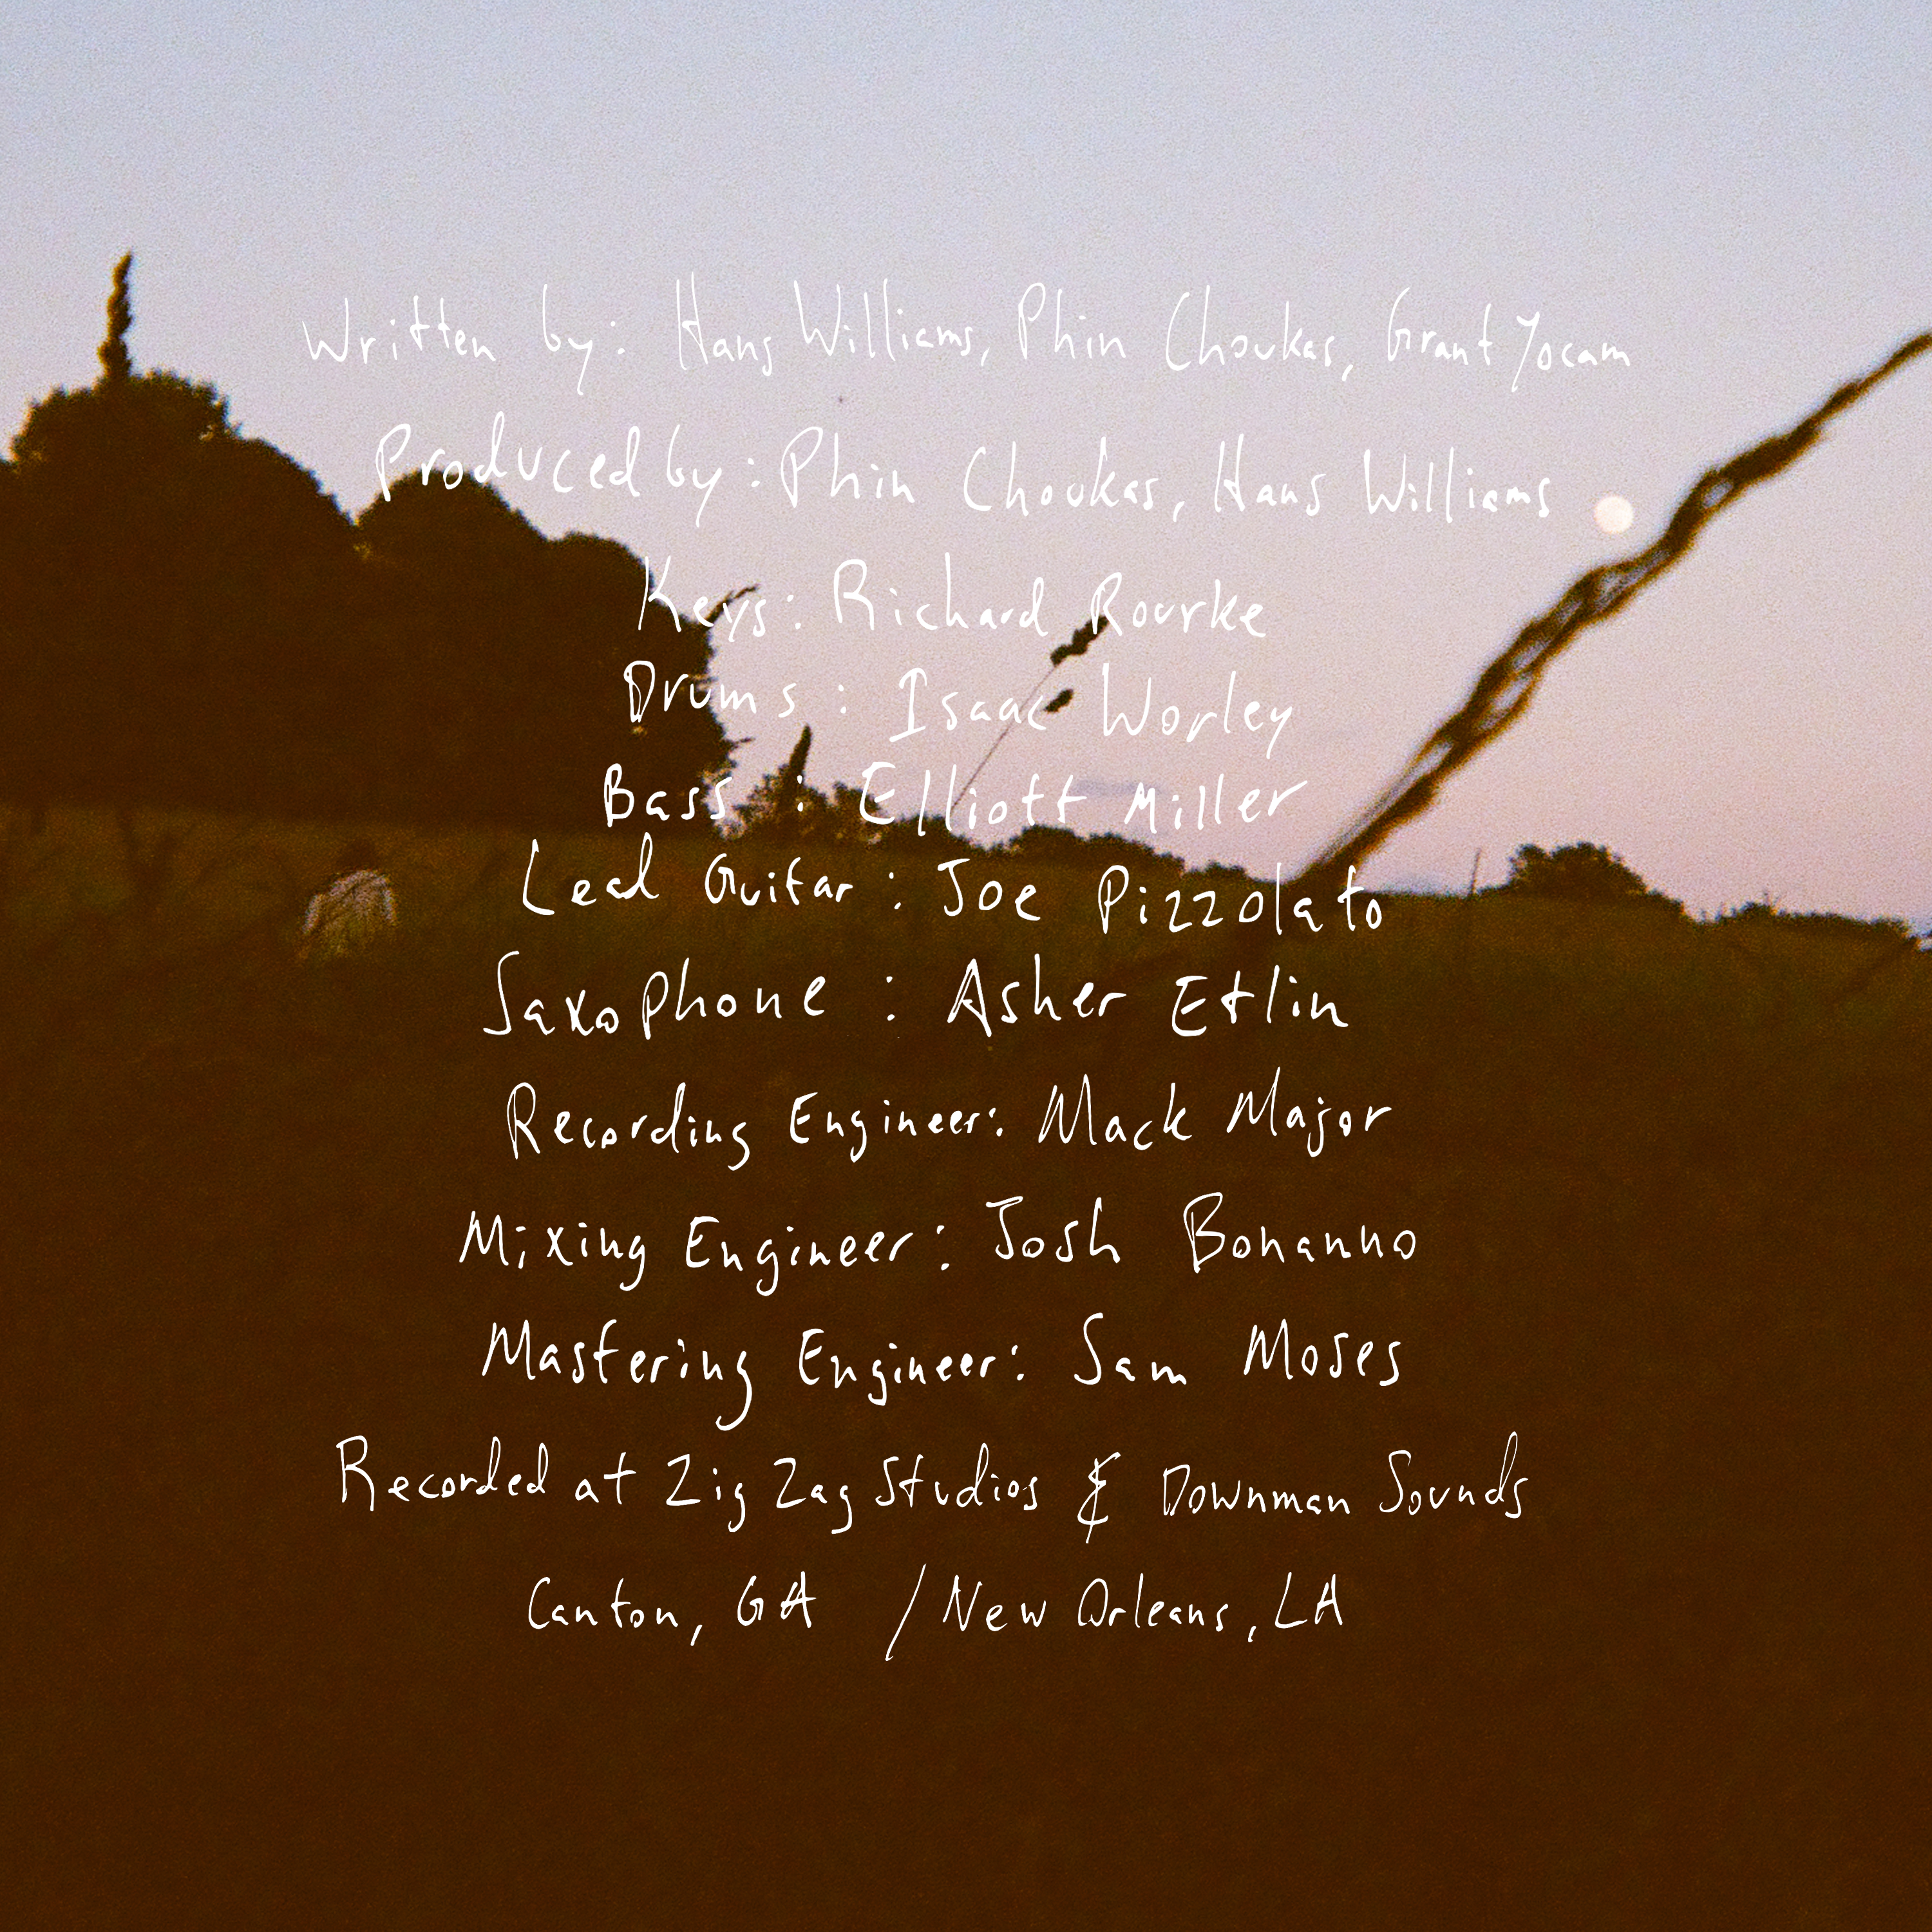 Written by: Hans Williams, Phin Choukas, Grant Yocam
Produced by: Phin Choukas, Hans Williams
Keys: Richard Rourke
Drums: Isaac Worley
Bass: Elliott Miller
Lead Guitar: Joe Pizzolato
Saxophone: Asher Etlin
Recording Engineer: Mack Major
Mixing Engineer: Josh Bonanno
Mastering Engineer: Sam Moses
Recorded at Zig Zag Studios & Downman Sounds
Canton, GA / New Orleans, LA